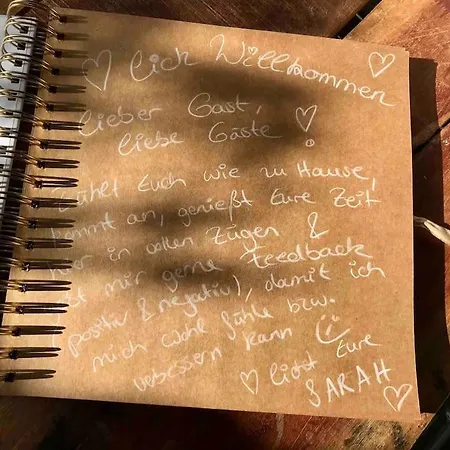 ♡lich Willkommen ♡
Lieber Gast,
liebe Gäste ♡!
Fühlt Euch wie zu Hause,
kommt an, genießt Eure Zeit
hier in vollen Zügen &
gebt mir gerne Feedback
(positiv & negativ), damit ich
mich wohl fühle bzw.
verbessern kann ☺
♡lichst Eure
SARAH ♡